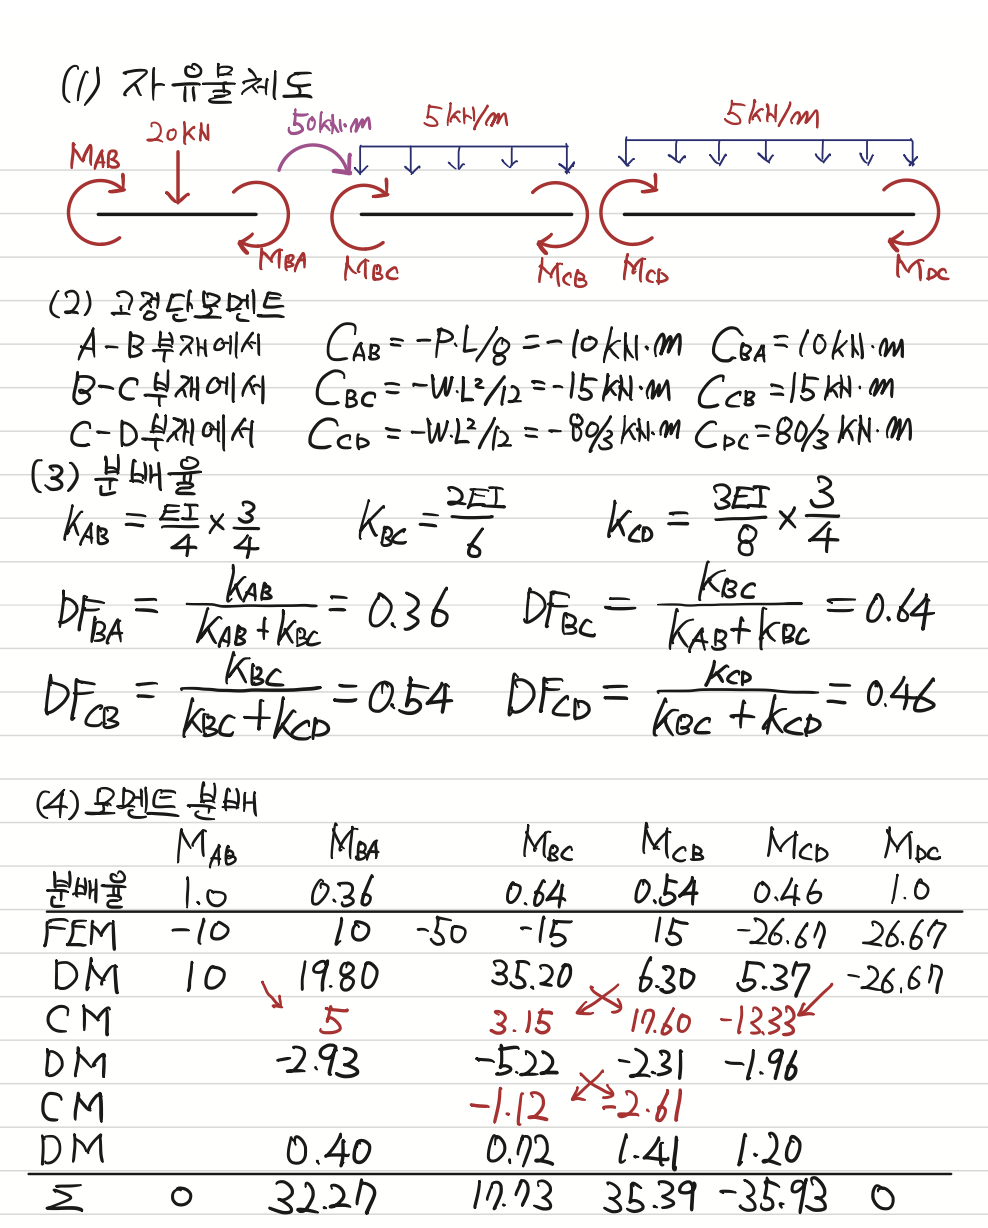 (1) 자유물체도
20kN 50kN·m 5kN/m 5kN/m
M_AB M_BA M_BC M_CB M_CD M_DC
(2) 고정단모멘트
A-B 부재에서 C_AB = -P·L/8 = -10kN·m C_BA = 10kN·m
B-C 부재에서 C_BC = -W·L²/12 = -15kN·m C_CB = 15kN·m
C-D부재에서 C_CD = -W·L²/12 = -80/3 kN·m C_DC = 80/3 kN·m
(3) 분배율
k_AB = EI/4 × 3/4 k_BC = 2EI/6 k_CD = 3EI/8 × 3/4
DF_BA = k_AB/(k_AB + k_BC) = 0.36 DF_BC = k_BC/(k_AB + k_BC) = 0.64
DF_CB = k_BC/(k_BC + k_CD) = 0.54 DF_CD = k_CD/(k_BC + k_CD) = 0.46
(4) 모멘트 분배
M_AB M_BA M_BC M_CB M_CD M_DC
분배율 1.0 0.36 0.64 0.54 0.46 1.0
FEM -10 10 -50 -15 15 -26.67 26.67
DM 10 19.80 35.20 6.30 5.37 -26.67
CM 5 3.15 17.60 -13.33
DM -2.93 -5.22 -2.31 -1.96
CM -1.12 -2.61
DM 0.40 0.72 1.41 1.20
Σ 0 32.27 17.73 35.39 -35.93 0